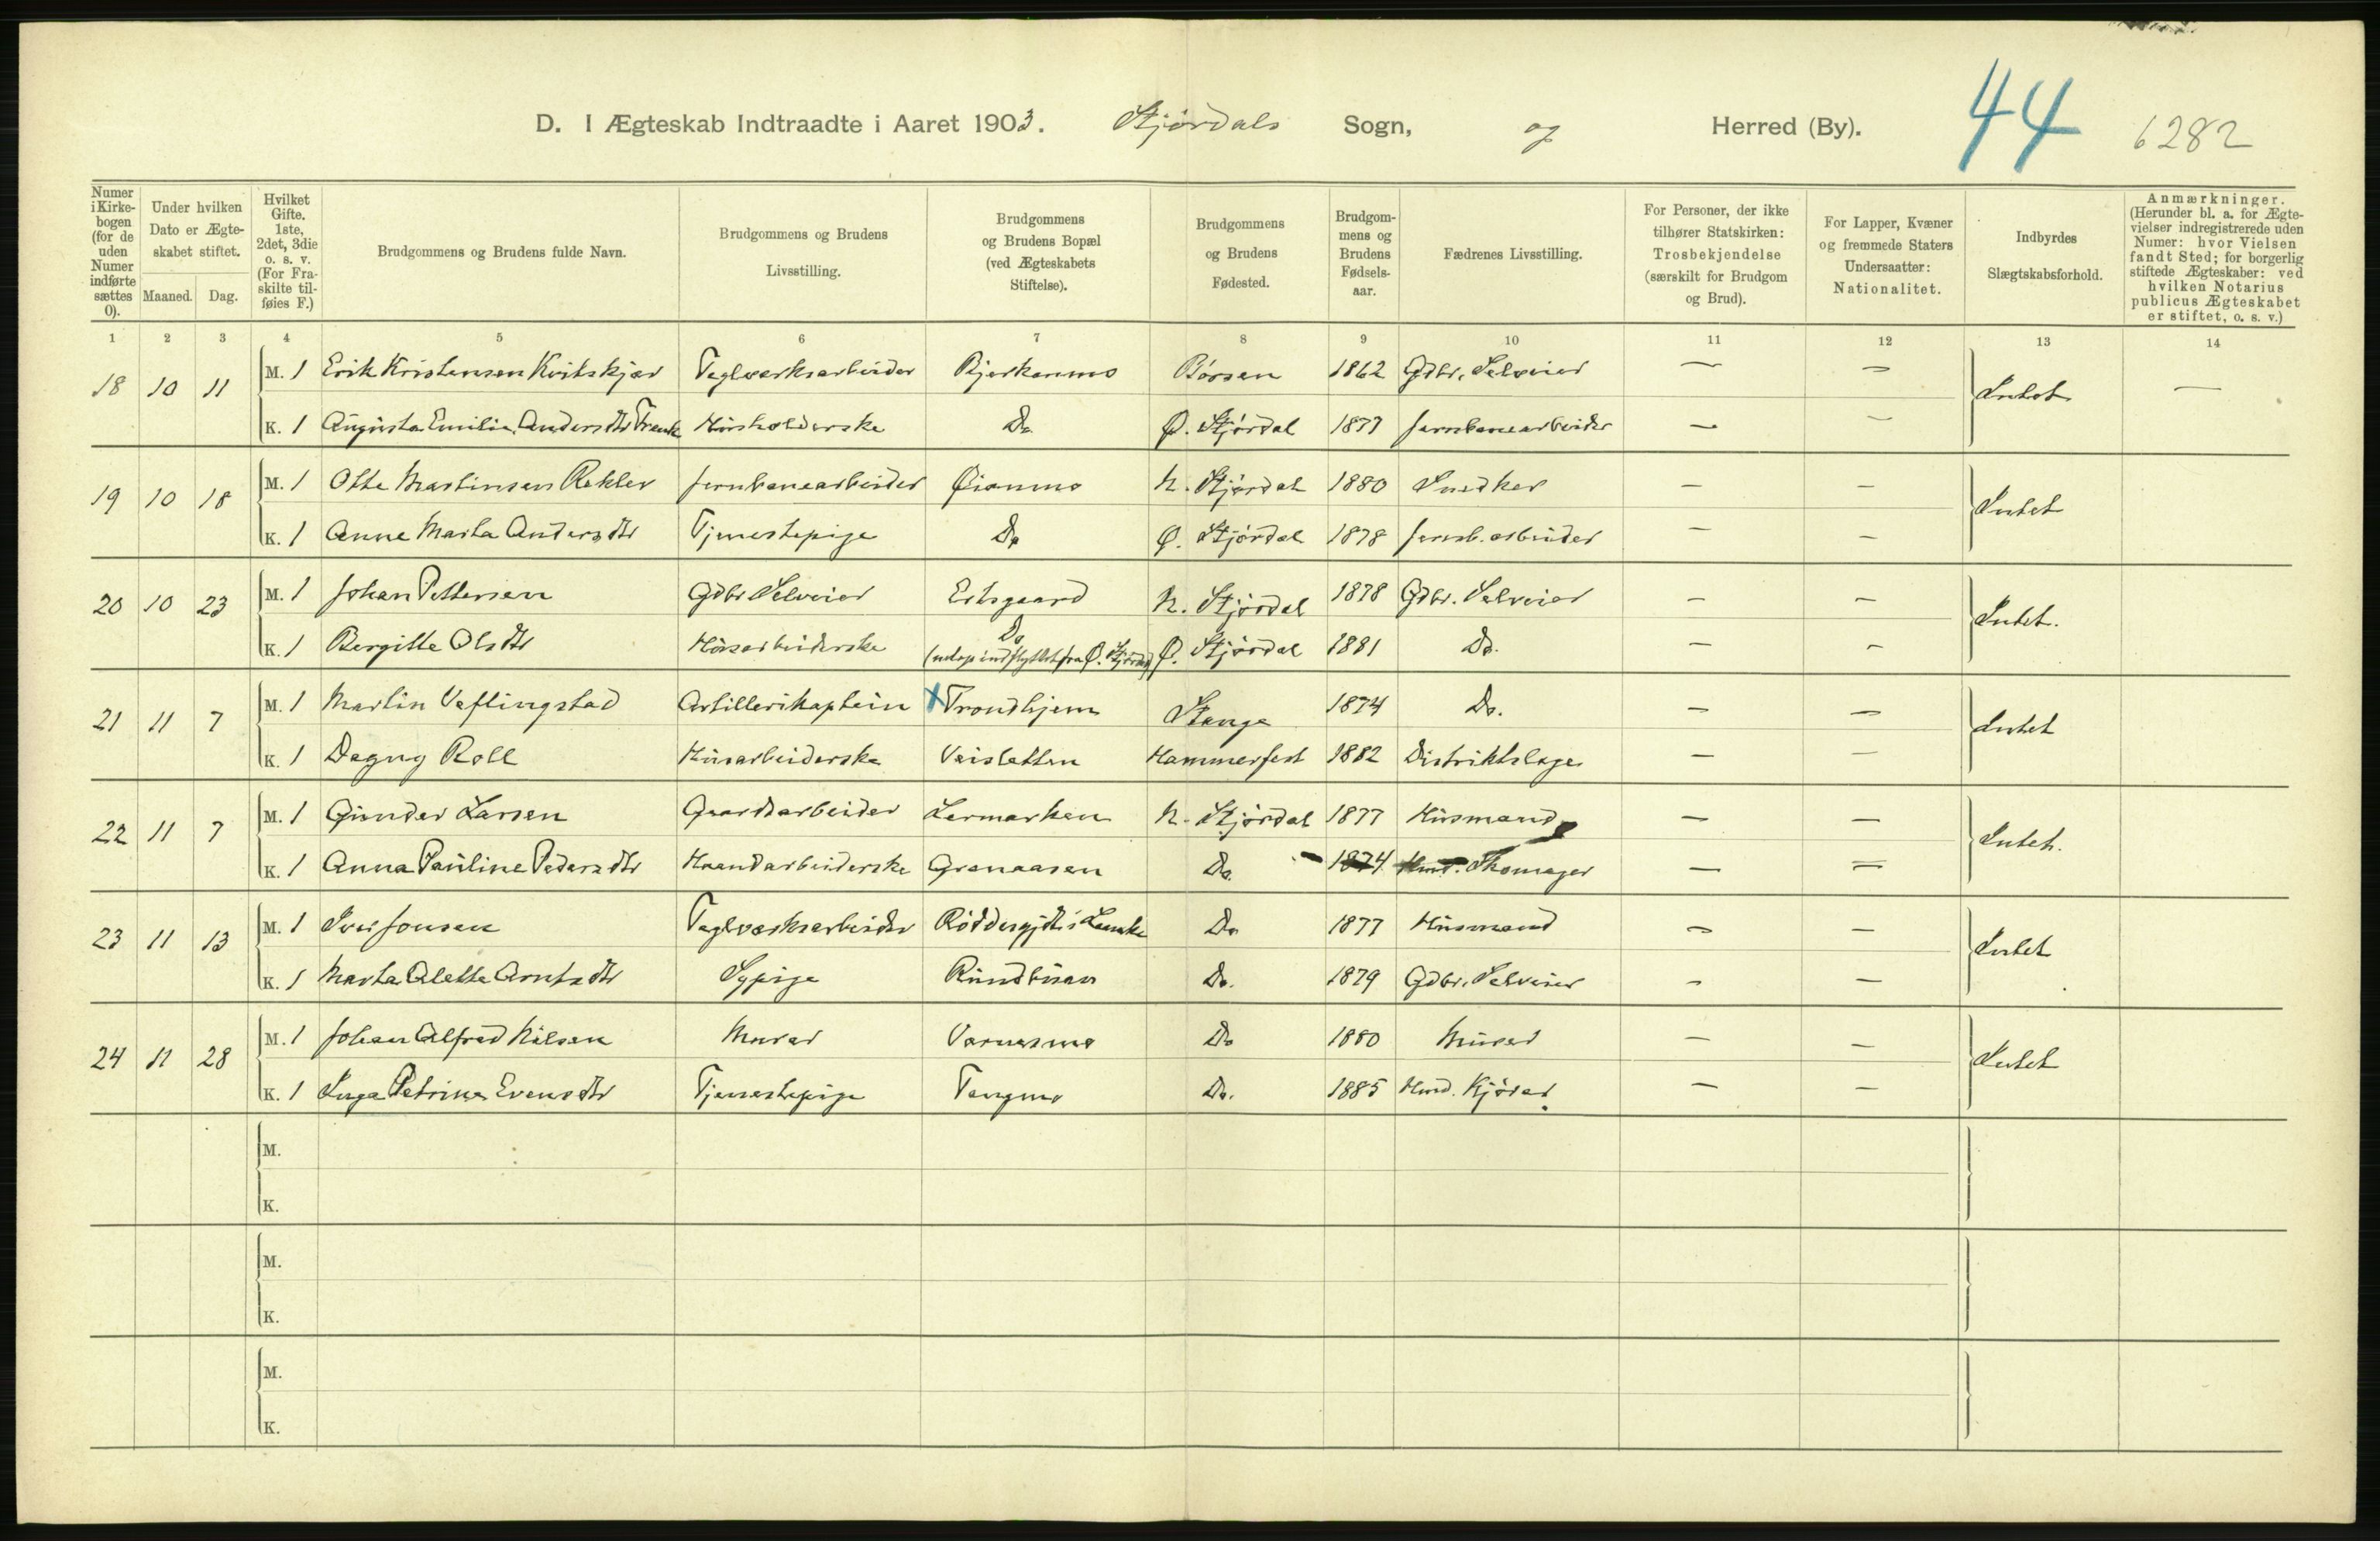 D. I Ægteskab Indtraadte i Aaret 1903. Stjørdals Sogn, og Herred (By). 44 6282
Numer i Kirkebogen (for de uden Numer indførte sættes 0). Under hvilken Dato er Ægteskabet stiftet. Maaned. Dag. Hvilket Gifte. 1ste, 2det, 3die o. s. v. (For Fraskilte tilføies F.) Brudgommens og Brudens fulde Navn. Brudgommens og Brudens Livsstilling. Brudgommens og Brudens Bopæl (ved Ægteskabets Stiftelse). Brudgommens og Brudens Fødested. Brudgommens og Brudens Fødselsaar. Fædrenes Livsstilling. For Personer, der ikke tilhører Statskirken: Trosbekjendelse (særskilt for Brudgom og Brud). For Lapper, Kvæner og fremmede Staters Undersaatter: Nationalitet. Indbyrdes Slægtskabsforhold. Anmærkninger. (Herunder bl. a. for Ægtevielser indregistrerede uden Numer: hvor Vielsen fandt Sted; for borgerlig stiftede Ægteskaber: ved hvilken Notarius publicus Ægteskabet er stiftet, o. s. v.)
1 2 3 4 5 6 7 8 9 10 11 12 13 14
18 10 11 M. 1 Erik Kristensen Kvitskjær Teglverksarbeider Bjerkanmo Børsen 1862 Gdbr. Selveier — — Intet —
K. 1 Augusta Emilie Andersdtr Husholderske Do. Ø. Stjørdal 1877 Jernbanearbeider — —
19 10 18 M. 1 Otte Martinsen Rekler Jernbanearbeider Øianmo N. Stjørdal 1880 Snedker — — Intet
K. 1 Anne Marta Andersdtr Tjenestepige Do Ø. Stjørdal 1878 Jernb. arbeider — —
20 10 23 M. 1 Johan Pettersen Gdbr Selveier Ertsgaard N. Stjørdal 1878 Gdbr. Selveier — — Intet.
K. 1 Bergitte Olsdtr Husarbeiderske Do (netop indflyttet fra Ø. Stjørdal) Ø. Stjørdal 1881 Do. — —
21 11 7 M. 1 Martin Veflingstad Artillerikaptein x Trondhjem Stange 1874 Do. — — Intet
K. 1 Dagny Roll Husarbeiderske Veisletten Hammerfest 1882 Distriktslæge — —
22 11 7 M. 1 Gunder Larsen Gaardsarbeider Lermarken N. Stjørdal 1877 Husmand — — Intet.
K. 1 Anna Pauline Pedersdtr Haandarbeiderske Granaasen Do. 1874 Hmd. Skomager — —
23 11 13 M. 1 Iver Jonsen Teglværksarbeider Do. 1877 Husmand — — Intet
K. 1 Marta Alette Arntsdtr Sypige Do. 1879 Gdbr. Selveier — —
24 11 28 M. 1 Johan Alfred Nilsen MurerVærnesmo Do 1880 Murer — — Intet
K. 1 Inga Petrine Evensdtr Tjenestepige Tangmo Do. 1885 Hmd. Kjører — —
M.
K.
M.
K.
M.
K.